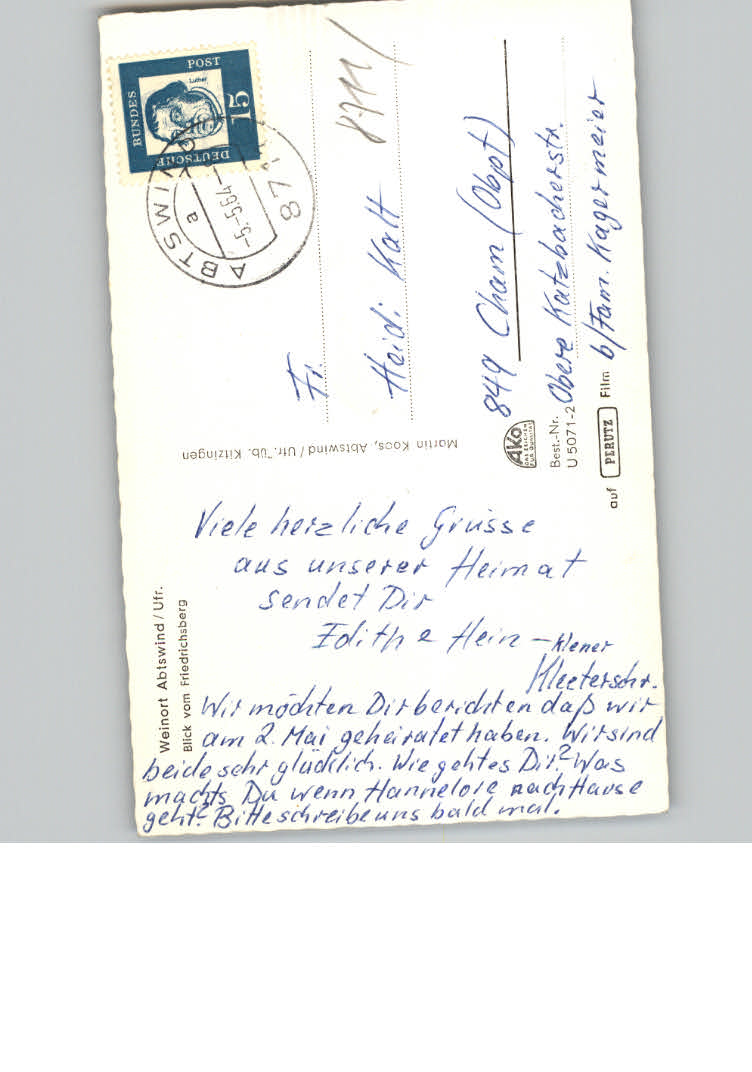 Weinort Abtswind / Ufr.
Blick vom Friedrichsberg
Viele herzliche Grüsse
aus unserer Heimat
sendet Dir
Edith e Hein –
Wir möchten Dir berichten daß wir
am 2. Mai geheiratet haben. Wir sind
beide sehr glücklich. Wie geht es Dir? Was
machts Du wenn Hannelore nach Hause
geht? Bitte schreibe uns bald mal.
Martin Koos, Abtswind / Ufr. Üb. Kitzingen
DEUTSCHE
BUNDES
POST
15
Luther
ABTSWIND
871
a
-5.5.64-
8711
Fr.
Heidi Kalt
849 Cham (Obpf)
Obere Katzbacherstr.
b/Fam. Kagermeier
AKO
DAS ZEICHEN
FÜR QUALITÄT
Best.-Nr.
U 5071-2
auf PERUTZ Film